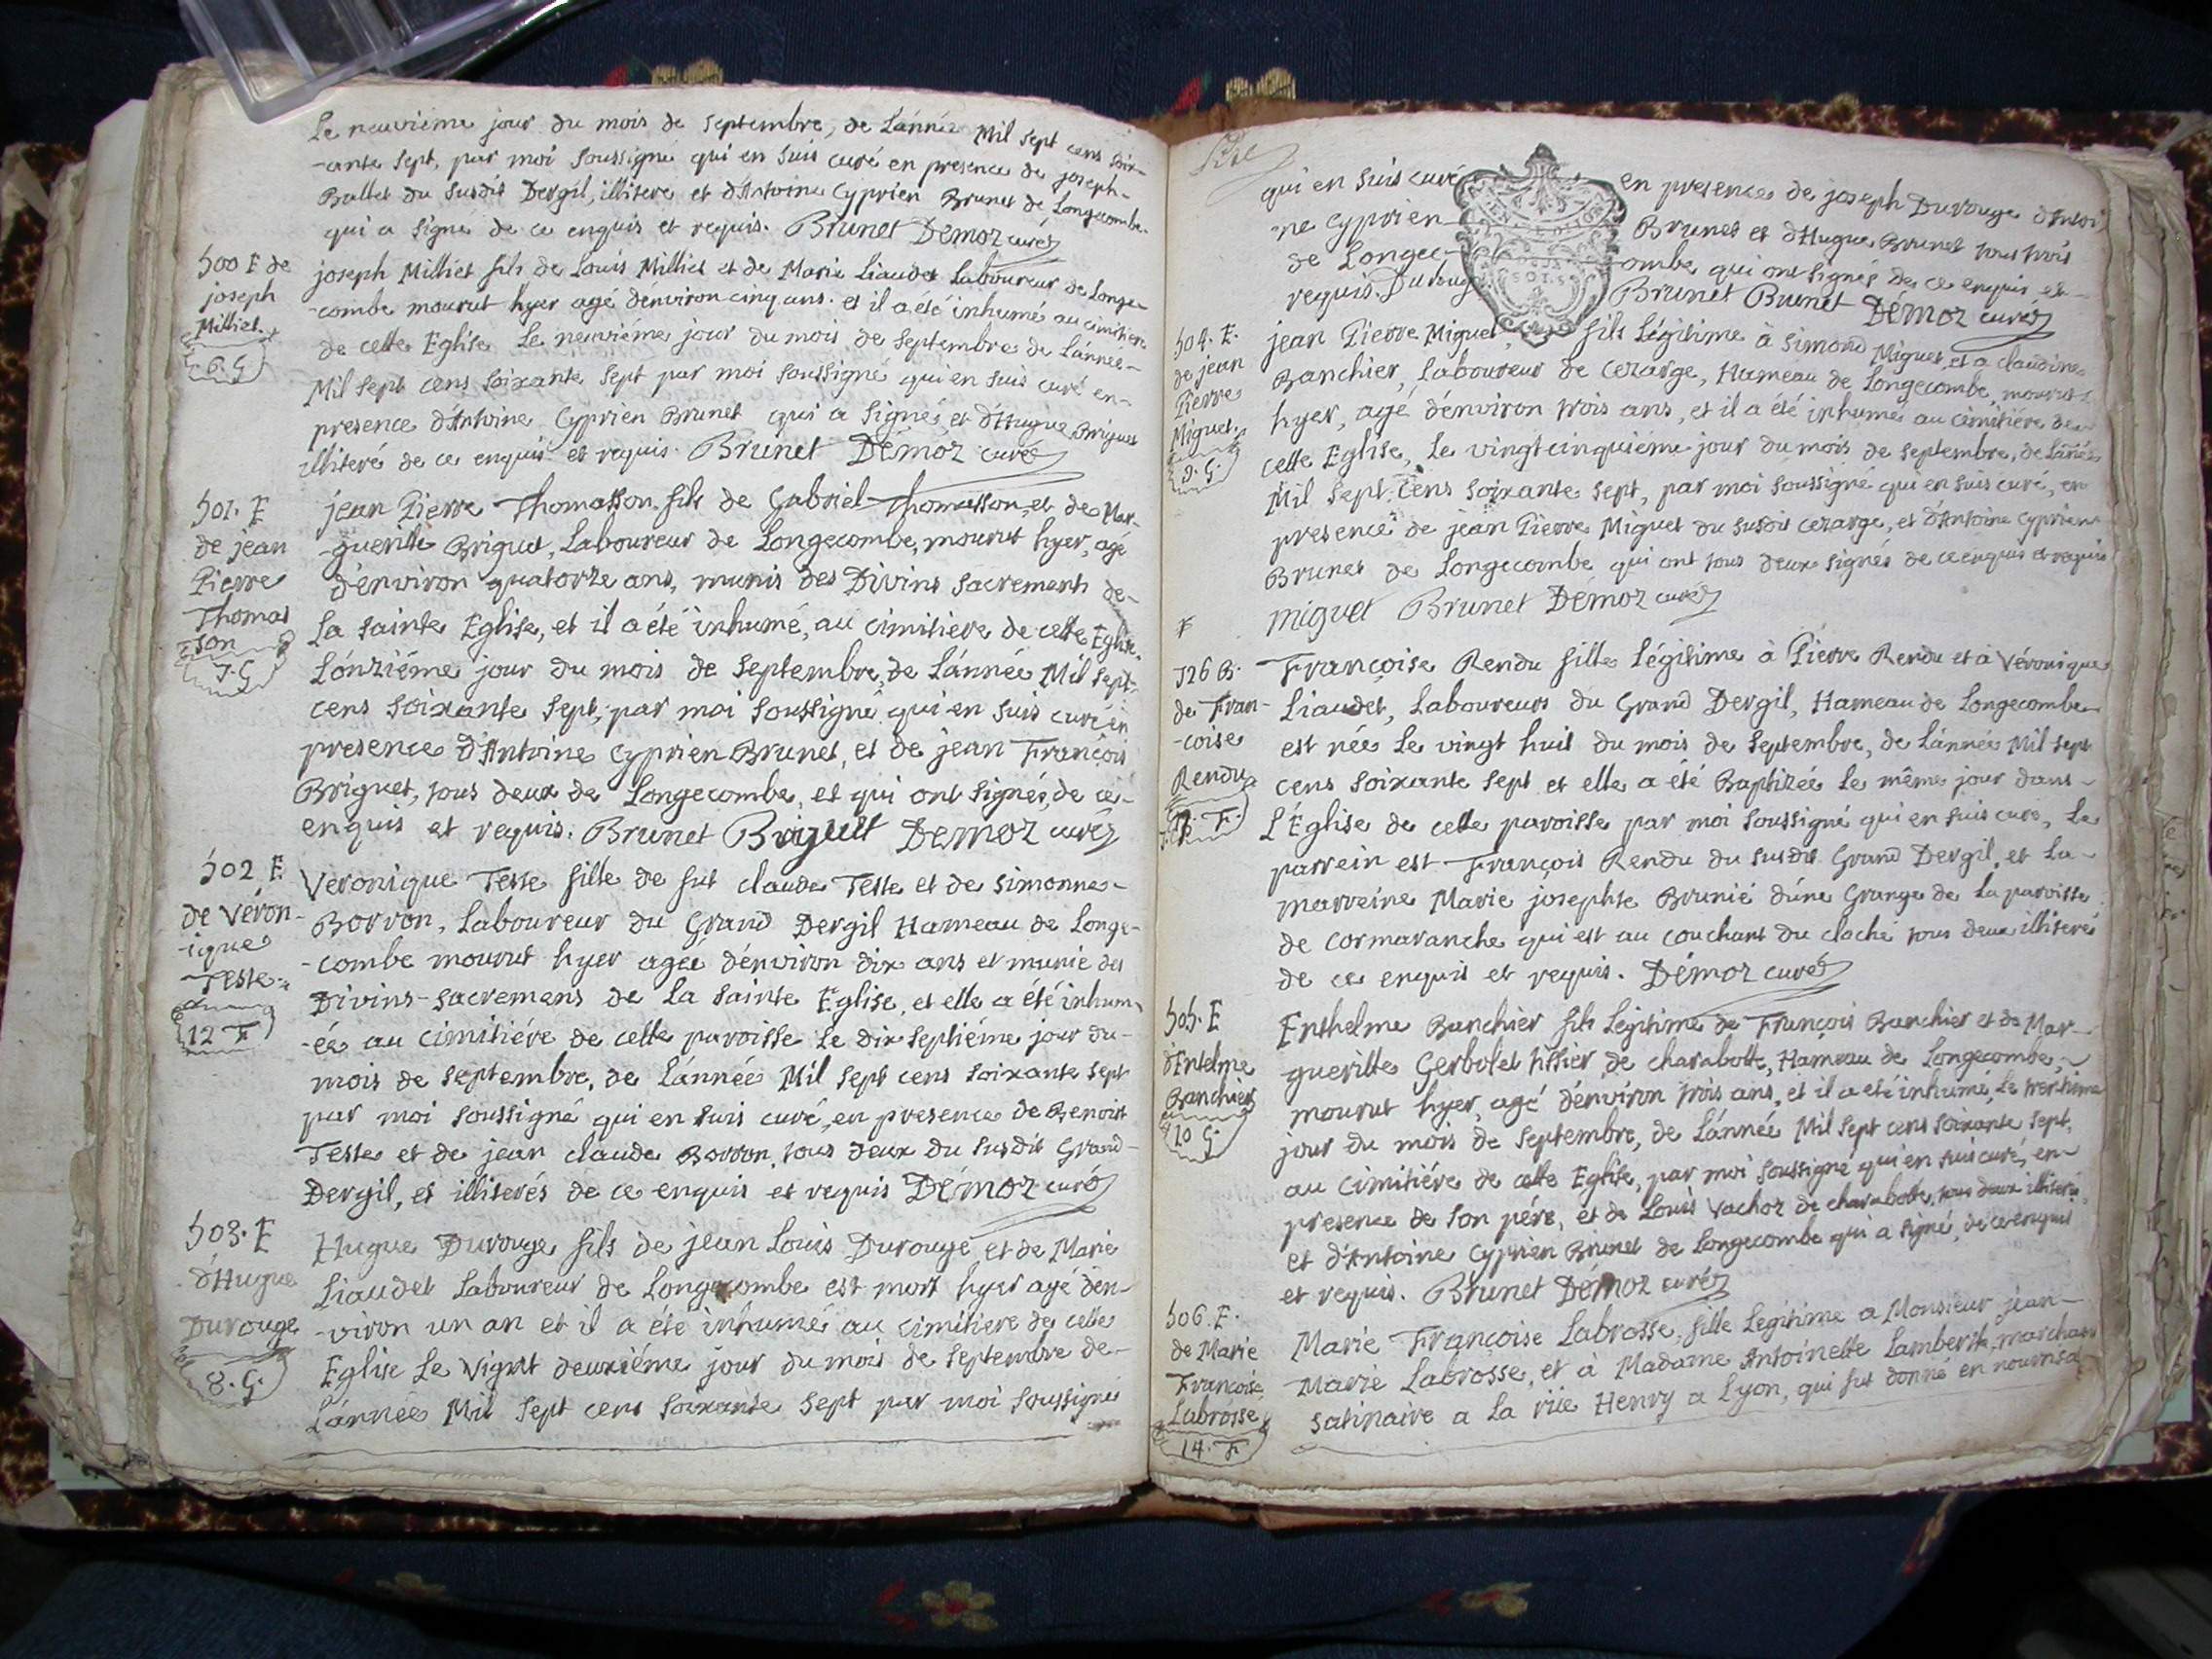 Le neuviéme jour du mois de Septembre, de Lánnée Mil sept cens soix-
-ante sept, par moi soussigné qui en suis curé en presence de joseph-
Ballet du susdit Dergil, illiteré et d'Antoine Cyprien Brunet de Longecombe
qui a signé de ce enquis et requis. Brunet Démoz curé
500 E de
joseph
Milliet.
6. G
joseph Milliet fils de Louis Milliet et de Marie Liaudet Laboureur de Longe-
-combe mourut hyer agé dénviron cinq ans. et il a été inhumé au cimitiere
de cette Eglise Le neuviéme jour du mois de Septembre de Lánnée-
Mil sept cens soixante sept par moi soussigné qui en suis curé en-
presence d'Antoine Cyprien Brunet qui a signé, et d'Hugue Briguet
illiteré de ce enquis et requis. Brunet Démoz curé
501. E
de jean
Pierre
Thomas
son
7. G
jean Pierre Thomasson fils de Gabriel Thomasson, et de Mar-
-guerite Briguet, Laboureur de Longecombe, mourut hyer, agé
d'environ quatorze ans, munis des Divins sacrements de-
La sainte Eglise, et il a été inhumé, au cimitiére de cette Eglise,
Lónziéme jour du mois de Septembre, de Lánnée Mil sept-
cens soixante sept, par moi soussigné qui en suis curé en
presence d'Antoine Cyprien Brunet, et de jean François
Briguet, tous deux de Longecombe, et qui ont signés, de ce-
enquis et requis. Brunet Briguet Démoz curé
502 E
de Véron-
-ique
Teste
12 F
Veronique Teste fille de fut claude Teste et de Simonne-
Borron, Laboureur du Grand Dergil Hameau de Longe-
-combe mourut hyer agée dénviron dix ans et munie des
Divins-sacremens de La sainte Eglise, et elle a été inhum-
-ée au cimitiére de cette paroisse Le dix septiéme jour du-
mois de Septembre, de Lánnée Mil sept cens soixante sept
par moi soussigné qui en suis curé, en presence de Benoist
Teste et de jean claude Borron, tous deux du susdit Grand-
Dergil, et illiterés de ce enquis et requis Démoz curé
503. E
d'Hugue
Durouge
8. G.
Hugue Durouge fils de jean Louis Durouge et de Marie
Liaudet Laboureur de Longecombe est mort hyer agé dén-
-viron un an et il a été inhumé au cimitiere de cette
Eglise Le Vignt deuxiéme jour du mois de Septembre de-
Lánnée Mil sept cens soixante sept par moi soussigné
qui en suis curé en presence de joseph Durouge d'Antoi
-ne Cyprien Brunet et d'Hugue Brunet tous trois
de Longecombe qui ont signés de ce enquis et-
requis. Durouge Brunet Brunet Démoz curé
504. E.
de jean
Pierre
Miguet.
9. G.
jean Pierre Miguet, fils Légitime à Simond Miguet, et a claudine
Banchier, Laboureur de Cezarge, Hameau de Longecombe, mourut
hyer, agé dénviron trois ans, et il a été inhumé au cimitiére de-
cette Eglise, Le vingt cinquiéme jour du mois de Septembre, de Lánée
Mil Sept cens soixante sept, par moi soussigné qui en suis curé, en
presence de jean Pierre Miguet du susdit Cezarge, et d'Antoine Cyprien
Brunet de Longecombe qui ont tous deux signés de ce enquis et requis
miguet Brunet Démoz curé
F
126 B.
de Fran-
-coise
Rendu
F.
Françoise Rendu fille Légitime à Pierre Rendu et à Véronique
Liaudet, Laboureurs du Grand Dergil, Hameau de Longecombe
est née Le vingt huit du mois de Septembre, de Lánnée Mil sept
cens soixante sept et elle a été Baptizée Le même jour dans-
L'Église de cette paroisse par moi soussigné qui en suis curé, Le
parrein est François Rendu du susdit Grand Dergil, et La-
marreine Marie josephte Brunié dúne Grange de La paroisse
de Cormaranche qui est au couchant du cloché tous deux illiterés
de ce enquis et requis. Démoz curé
505. E
d'Entelme
Banchier
10 G.
Enthelme Banchier fils Légitime de François Banchier et de Mar-
guerite Gerbolet tissier de charabotte, Hameau de Longecombe,
mourut hyer, agé dénviron trois ans, et il a eté inhumé, Le trentiéme
jour du mois de Septembre, de Lánnée Mil sept cens soixante sept,
au cimitiére de cette Eglise, par moi soussigné qui en suis curé, en-
presence de son pére, et de Louis Vachoz de charabotte, tous deux illiterés,
et d'Antoine Cyprien Brunet de Longecombe qui a signé, de ce enquis
et requis. Brunet Démoz curé
506. E.
de Marie
Françoise
Labrosse
14. F.
Marie Françoise Labrosse, fille Légitime a Monsieur jean-
Marie Labrosse, et à Madame Antoinette Lambert, marchand
satinaire a La rüe Henry a Lyon, qui fut donné en nourrisa